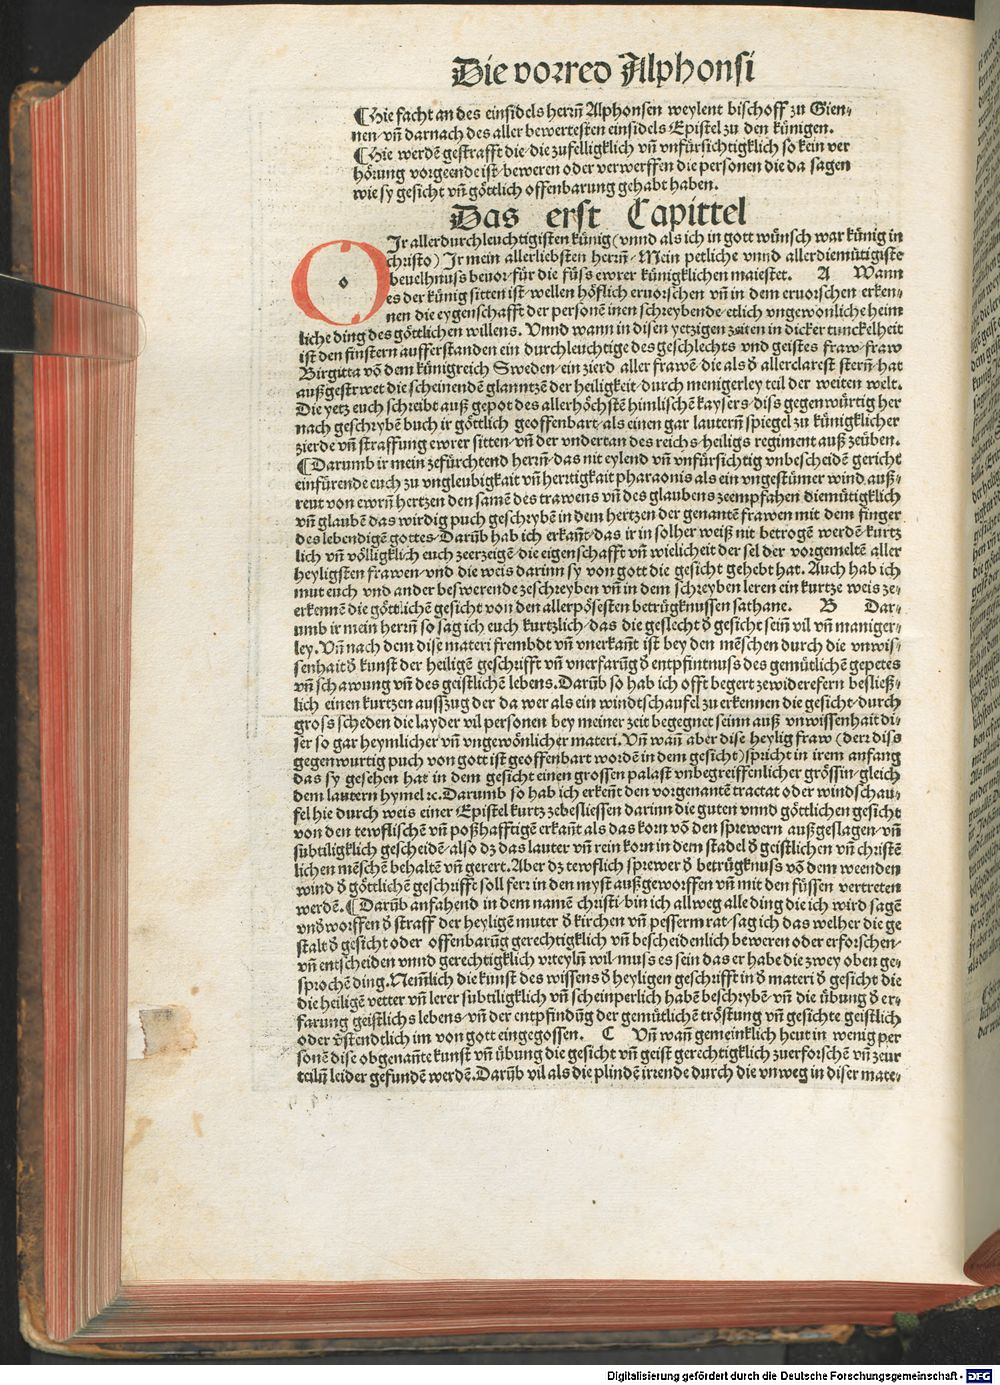 Die vorred Alphonsi
¶Hie facht an des einsidels herrn̄ Alphonsen weylent bischoff zu Gien⸗
nen/vn̄ darnach des aller bewertesten einsidels Epistel zu den künigen.
¶Hie werdē gestrafft die/die zufelligklich vn̄ vnfürsichtigklich so kein ver
hörung vorgeende ist/beweren oder verwerffen die personen die da sagen
wie sy gesicht vn̄ göttlich offenbarung gehabt haben.
Das erst Capittel
O Ir allerdurchleuchtigisten künig (vnnd als ich in gott wünsch war künig in
christo) Ir mein allerliebsten herrn̄/Mein petliche vnnd allerdiemütigiste
beuelhnuss beuor/für die füss ewrer künigklichen maiestet. A Wann
es der künig sitten ist/wellen höflich eruorschen vn̄ in dem eruorschen erken⸗
nen die eygenschafft der personē inen schreybende/etlich vngewonliche heim
liche ding des göttlichen willens. Vnnd wann in disen yetzigen zeiten in dicker tunckelheit
ist den finstern aufferstanden ein durchleuchtige des geschlechts vnd geistes fraw/fraw
Birgitta vō dem künigreich Sweden/ein zierd aller frawē/die als ð allerclarest stern̄/hat
außgestrwet die scheinendē glanntzē der heiligkeit/durch menigerley teil der weiten welt.
Die yetz euch schreibt auß gepot des allerhöchstē himlischē kaysers/diss gegenwürtig her
nach geschrybē buch ir göttlich geoffenbart/als einen gar lautern̄ spiegel zu künigklicher
zierde vn̄ straffung ewrer sitten/vn̄ der vndertan des reichs/heiligs regiment auß zeüben.
¶Darumb ir mein zefürchtend herrn̄/das nit eylend vn̄ vnfürsichtig vnbescheidē gericht
einfürende euch zu vngleubigkait vn̄ hertigkait pharaonis als ein vngestümer wind auß⸗
reut von ewrn̄ hertzen den samē des trawens vn̄ des glaubens zeempfahen diemütigklich
vn̄ glaubē das wirdig puch geschrybē in dem hertzen der genantē frawen mit dem finger
des lebendigē gottes/Darūb hab ich erkan̄t/das ir in solher weiß nit betrogē werdē/kurtz
lich vn̄ völligklich euch zeerzeigē/die eigenschafft vn̄ wielicheit der sel der vorgemeltē aller
heyligsten frawen/vnd die weis darinn sy von gott die gesicht gehebt hat. Auch hab ich
mut euch vnd ander beswerende zeschreyben vn̄ in dem schreyben leren ein kurtze weis ze⸗
erkennē die göttlichē gesicht von den allerpösesten betrügknussen sathane. B Dar⸗
umb ir mein herrn̄ so sag ich euch kurtzlich/das die geslecht ð gesicht sein̄ vil vn̄ maniger⸗
ley. Vn̄ nach dem dise materi frembdt vn̄ vnerkan̄t ist bey den mēschen durch die vnwis⸗
senhait ð kunst der heiligē geschrifft vn̄ vnerfarūg ð entpfintnuss des gemütlichē gepetes
vn̄ schawung vn̄ des geistlichē lebens. Darūb so hab ich offt begert zewiderefern besließ⸗
lich einen kurtzen ausszug der da wer als ein windtschaufel zu erkennen die gesicht/durch
gross scheden die layder vil personen bey meiner zeit begegnet seinn auß vnwissenhait di⸗
ser so gar heymlicher vn̄ vngewönlicher materi. Vn̄ wan̄ aber dise heylig fraw (derr diss
gegenwurtig puch von gott ist geoffenbart wordē in dem gesicht) spricht in irem anfang
das sy gesehen hat in dem gesicht einen grossen palast vnbegreiffenlicher grössin/gleich
dem lautern hymel ꝛc. Darumb so hab ich erkēnt den vorgenantē tractat oder windschau⸗
fel hie durch weis einer Epistel kurtz zebesliessen darinn die guten vnnd göttlichen gesicht
von den tewflischen vn̄ poßhafftigē erkan̄t als das korn vō den sprewern außgeslagen/vn̄
subtiligklich gescheidē/also dz das lauter vn̄ rein korn in dem stadel ð geistlichen vn̄ christē
lichen mēschē behaltē vn̄ gerert. Aber dz tewflich sprewer ð betrügknuss vō dem weenden
wind ð göttlichē geschrifft soll ferr in den myst außgeworffen vn̄ mit den füssen vertreten
werdē. ¶Darūb anfahend in dem namē christi/bin ich allweg alle ding die ich wird sagē
vnðworffen ð straff der heyligē muter ð kirchen vn̄ pesserm rat/sag ich das welher die ge
stalt ð gesicht oder offenbarūg gerechtigklich vn̄ bescheidenlich beweren oder erforschen/
vn̄ entscheiden vnnd gerechtigklich vrteyln̄ wil/muss es sein das er habe die zwey oben ge⸗
sprochē ding. Nem̄lich die kunst des wissens ð heyligen geschrifft in ð materi ð gesicht die
die heiligē vetter vn̄ lerer subtiligklich vn̄ scheinperlich habē beschrybē/vn̄ die übung ð er⸗
farung geistlichs lebens/vn̄ der entpfindūg der gemütlichē tröstung vn̄ gesichte geistlich
oder v̄stendtlich im von gott eingegossen. C Vn̄ wan̄ gemeinklich heut in wenig per
sonē dise obgenan̄te kunst vn̄ übung die gesicht vn̄ geist gerechtigklich zuerforschē vn̄ zeur
teiln̄ leider gefundē werdē. Darūb vil als die plindē irrende durch die vnweg in diser mate⸗
Digitalisierung gefördert durch die Deutsche Forschungsgemeinschaft - DFG